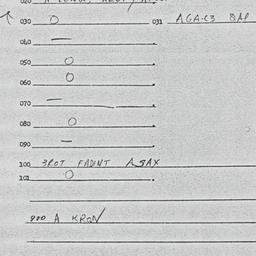 030 O 031 AGA-C3 BAP
040 —
050 O
060 O
070 —
080 O
090 —
100 3ROT FADNT ASAX
101 O
900 A KRON